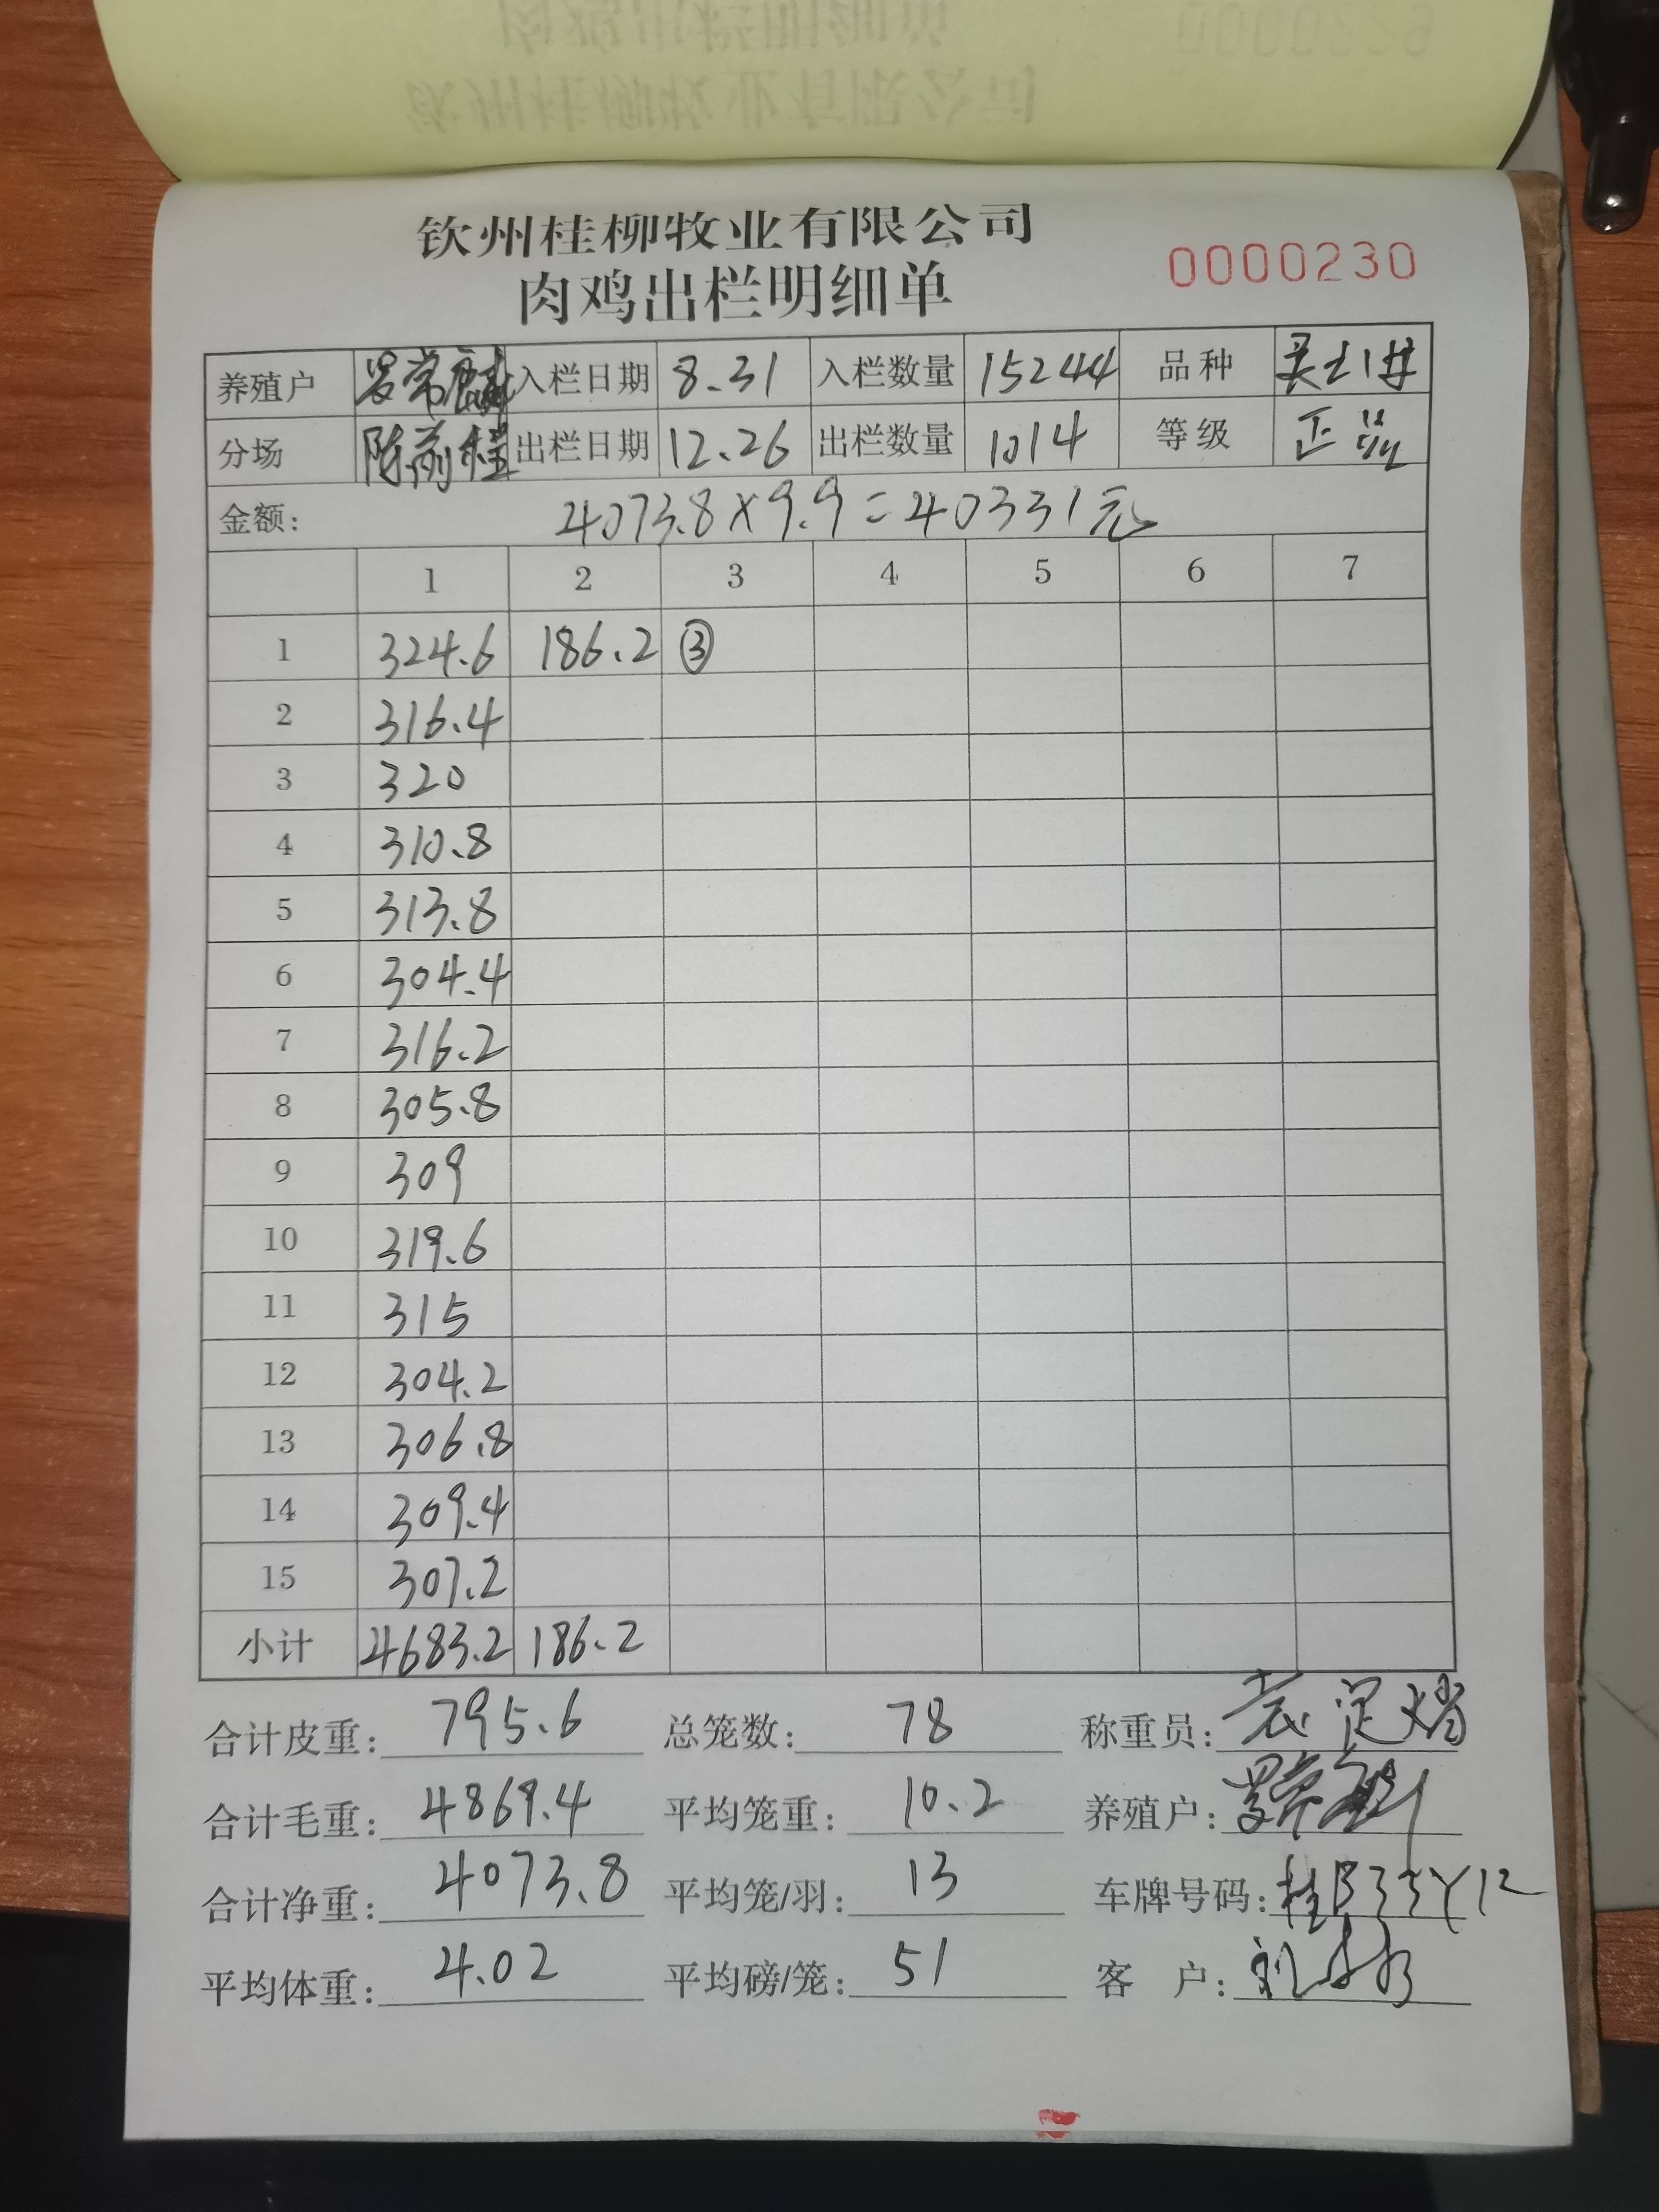 钦州桂柳牧业有限公司
肉鸡出栏明细单 0000230
养殖户 入栏日期 8.31 入栏数量 15244 品种
分场 出栏日期 12.26 出栏数量 1014 等级 正
金额: 4073.8×9.9=40331元
1 2 3 4 5 6 7
1 324.6 186.2 ③
2 316.4
3 320
4 310.8
5 313.8
6 304.4
7 316.2
8 305.8
9 309
10 319.6
11 315
12 304.2
13 306.8
14 309.4
15 307.2
小计 4683.2 186.2
合计皮重: 795.6 总笼数: 78 称重员:
合计毛重: 4869.4 平均笼重: 10.2 养殖户:
合计净重: 4073.8 平均笼/羽: 13 车牌号码:
平均体重: 4.02 平均磅/笼: 51 客 户: